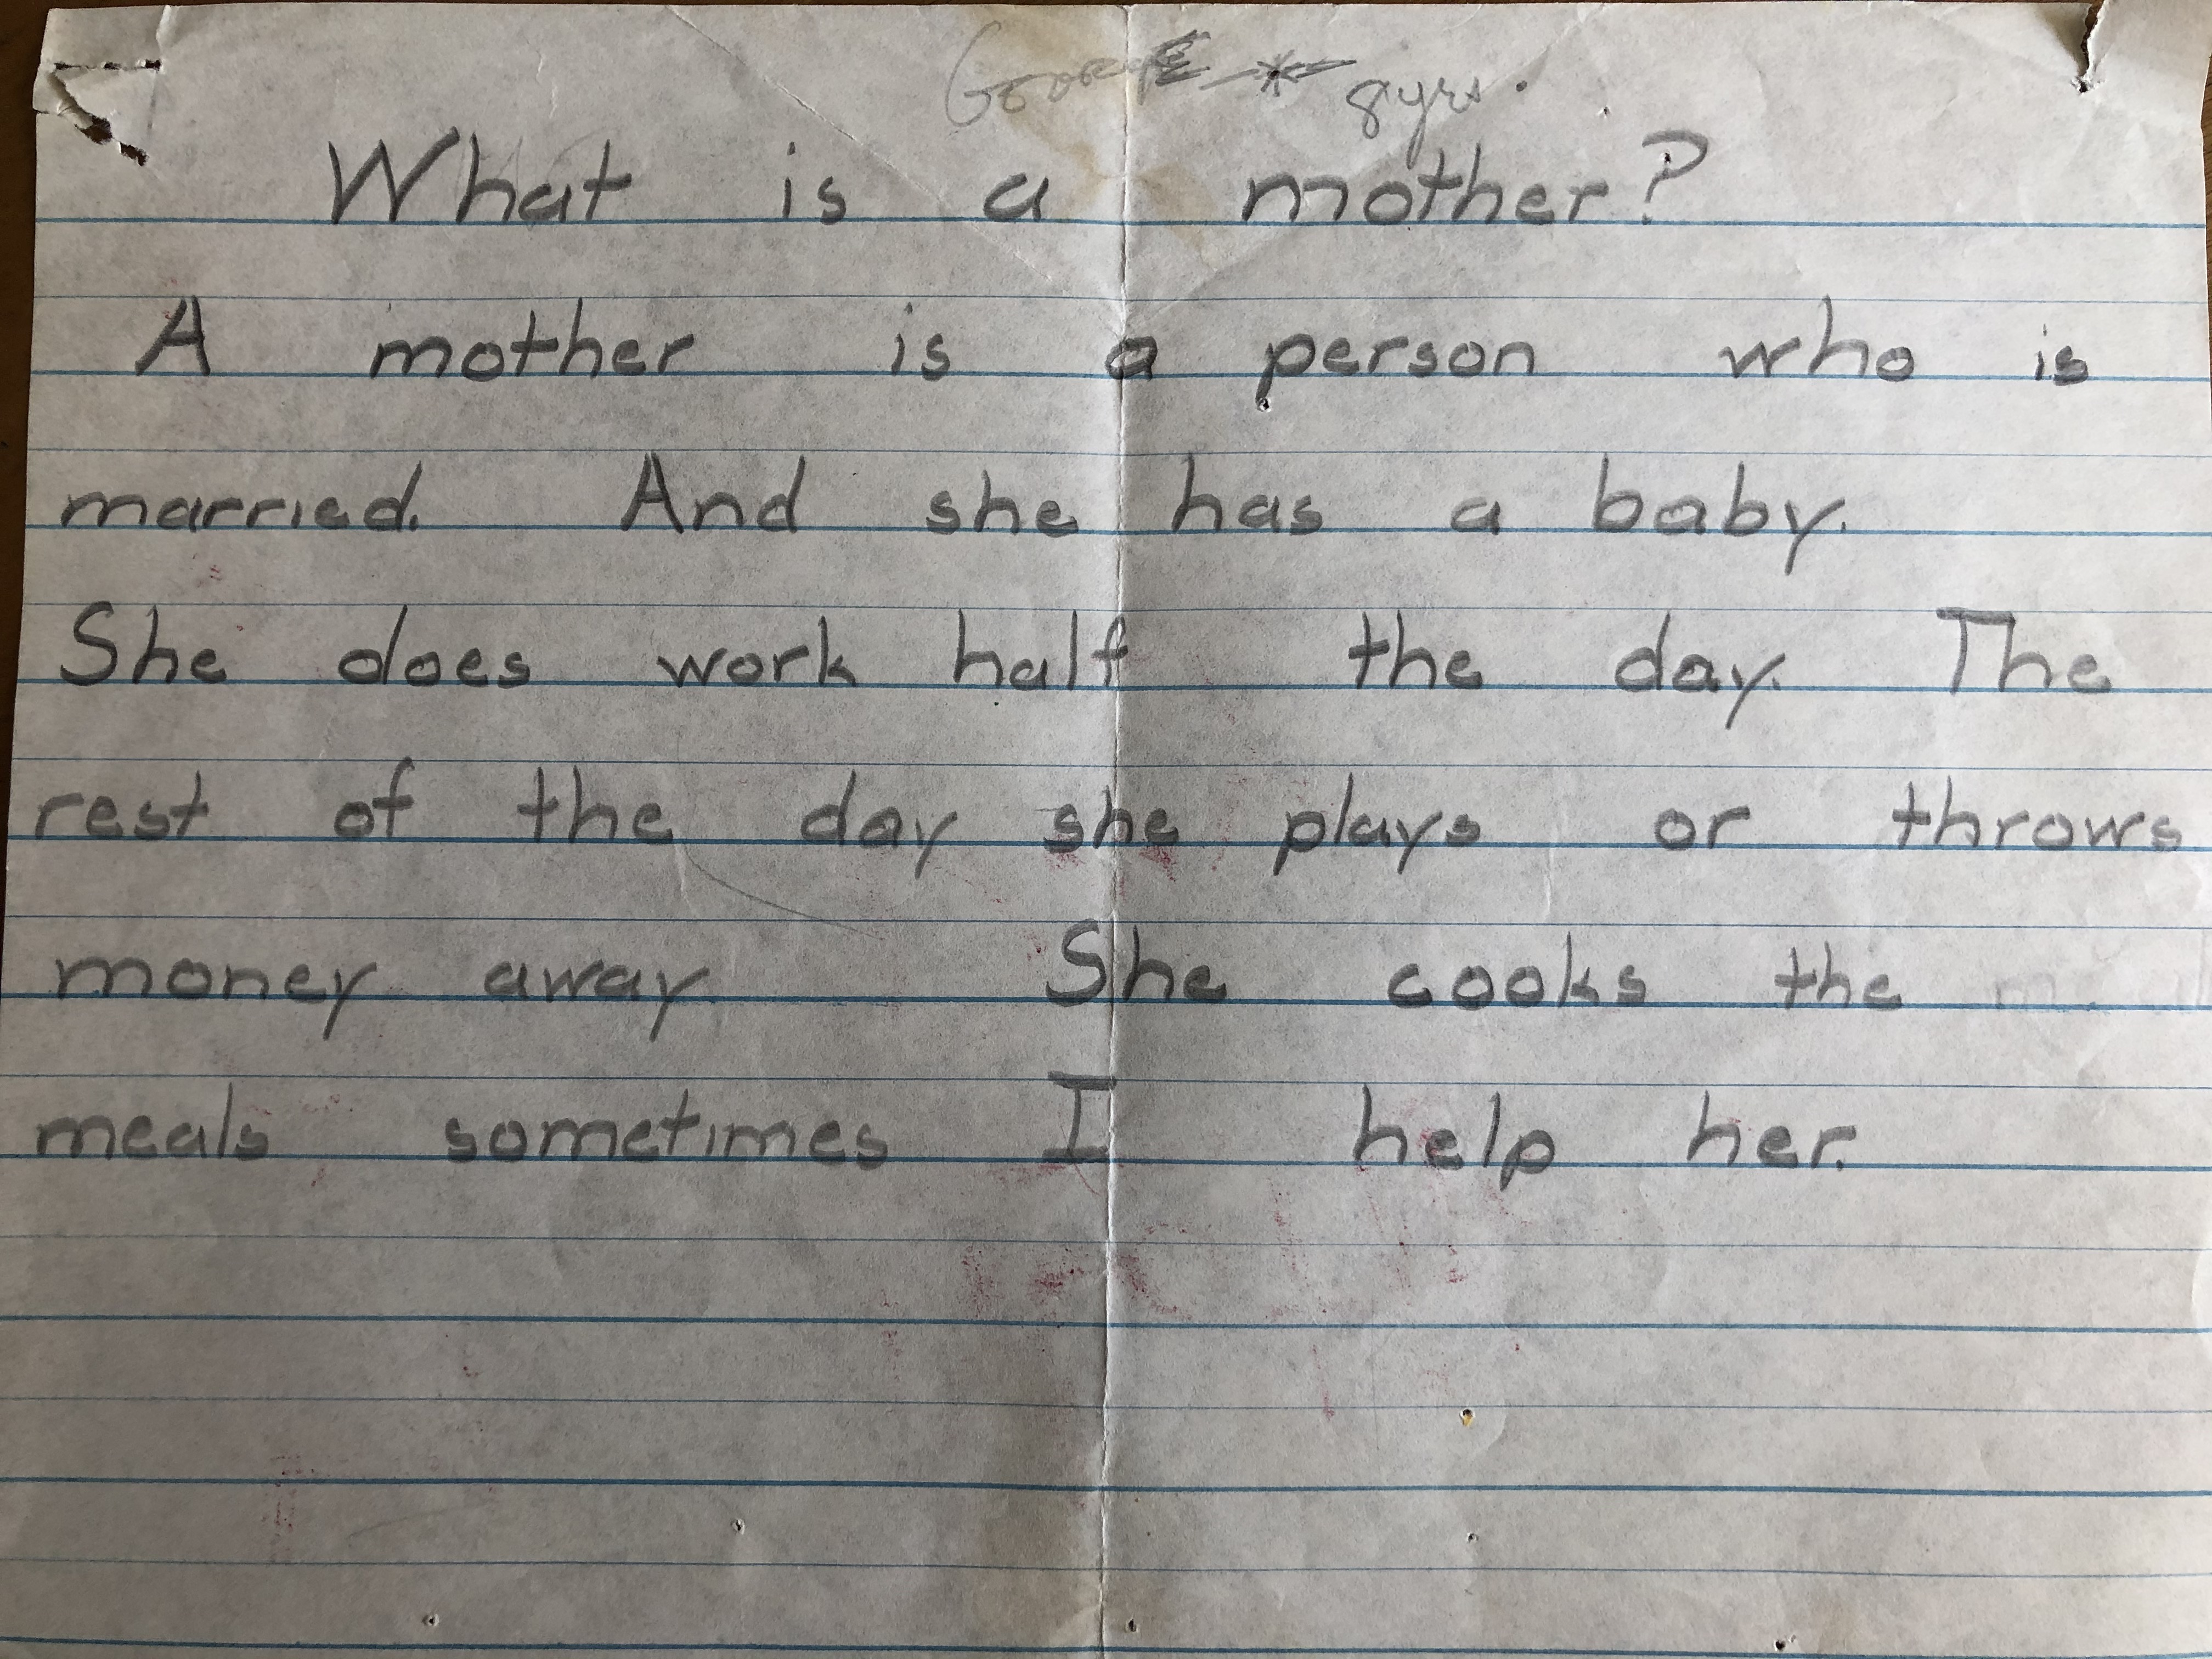 George 8yrs.
What is a mother?
A mother is a person who is
married. And she has a baby.
She does work half the day. The
rest of the day she plays or throws
money away. She cooks the
meals sometimes I help her.